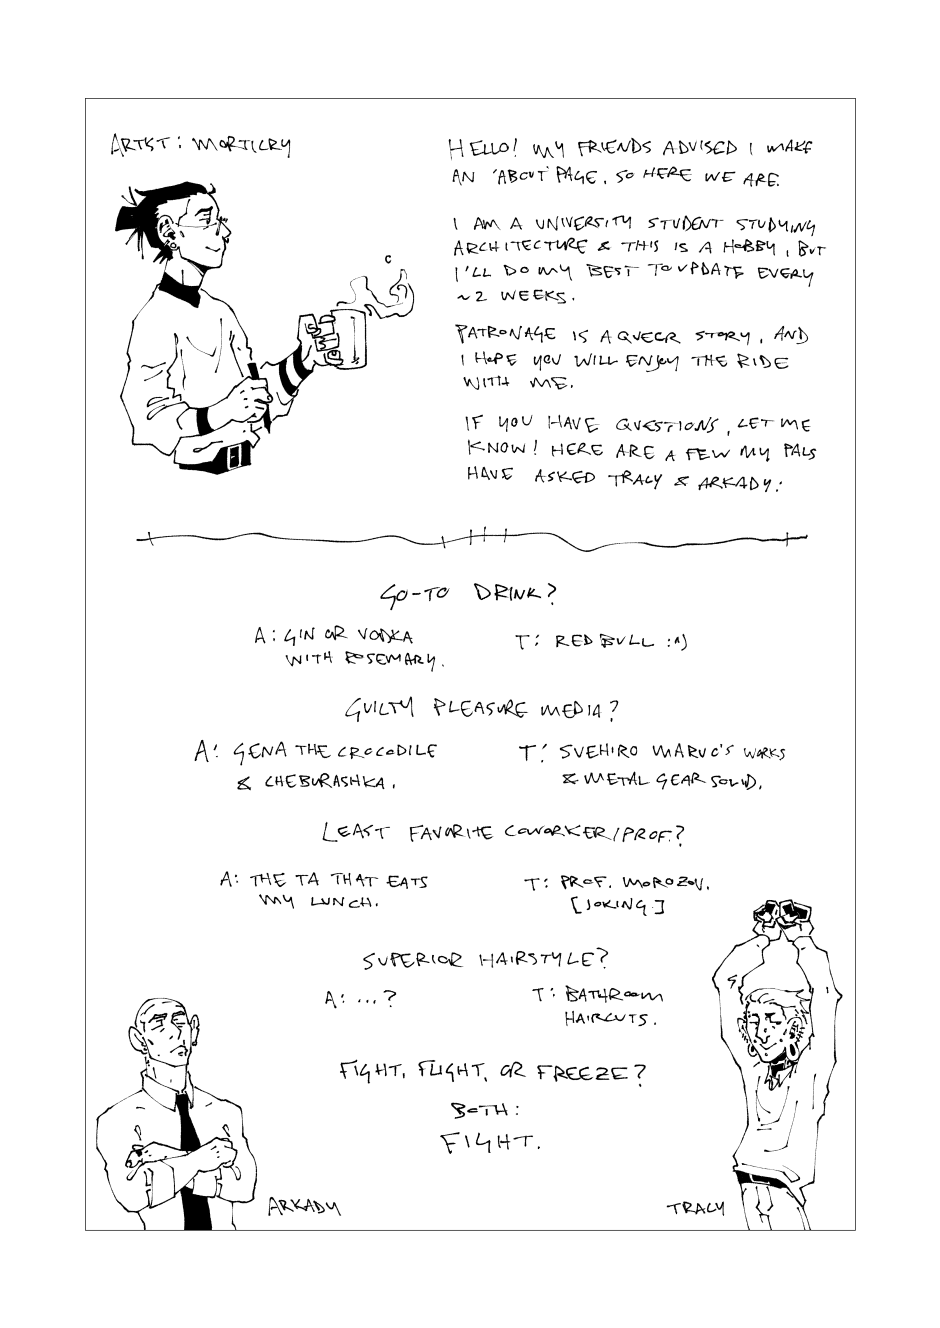 ARTIST: MORTICRY
HELLO! MY FRIENDS ADVISED I MAKE
AN 'ABOUT' PAGE, SO HERE WE ARE.
I AM A UNIVERSITY STUDENT STUDYING
ARCHITECTURE & THIS IS A HOBBY, BUT
I'LL DO MY BEST TO UPDATE EVERY
~2 WEEKS.
PATRONAGE IS A QUEER STORY, AND
I HOPE YOU WILL ENJOY THE RIDE
WITH ME.
IF YOU HAVE QUESTIONS, LET ME
KNOW! HERE ARE A FEW MY PALS
HAVE ASKED TRACY & ARKADY:
GO-TO DRINK?
A: GIN OR VODKA
WITH ROSEMARY.
T: RED BULL :^)
GUILTY PLEASURE MEDIA?
A: GENA THE CROCODILE
& CHEBURASHKA.
T: SUEHIRO MARUO'S WORKS
& METAL GEAR SOLID.
LEAST FAVORITE COWORKER/PROF.?
A: THE TA THAT EATS
MY LUNCH.
T: PROF. MOROZOV.
[JOKING.]
SUPERIOR HAIRSTYLE?
A: ...?
T: BATHROOM
HAIRCUTS.
FIGHT, FLIGHT, OR FREEZE?
BOTH:
FIGHT.
ARKADY
TRACY